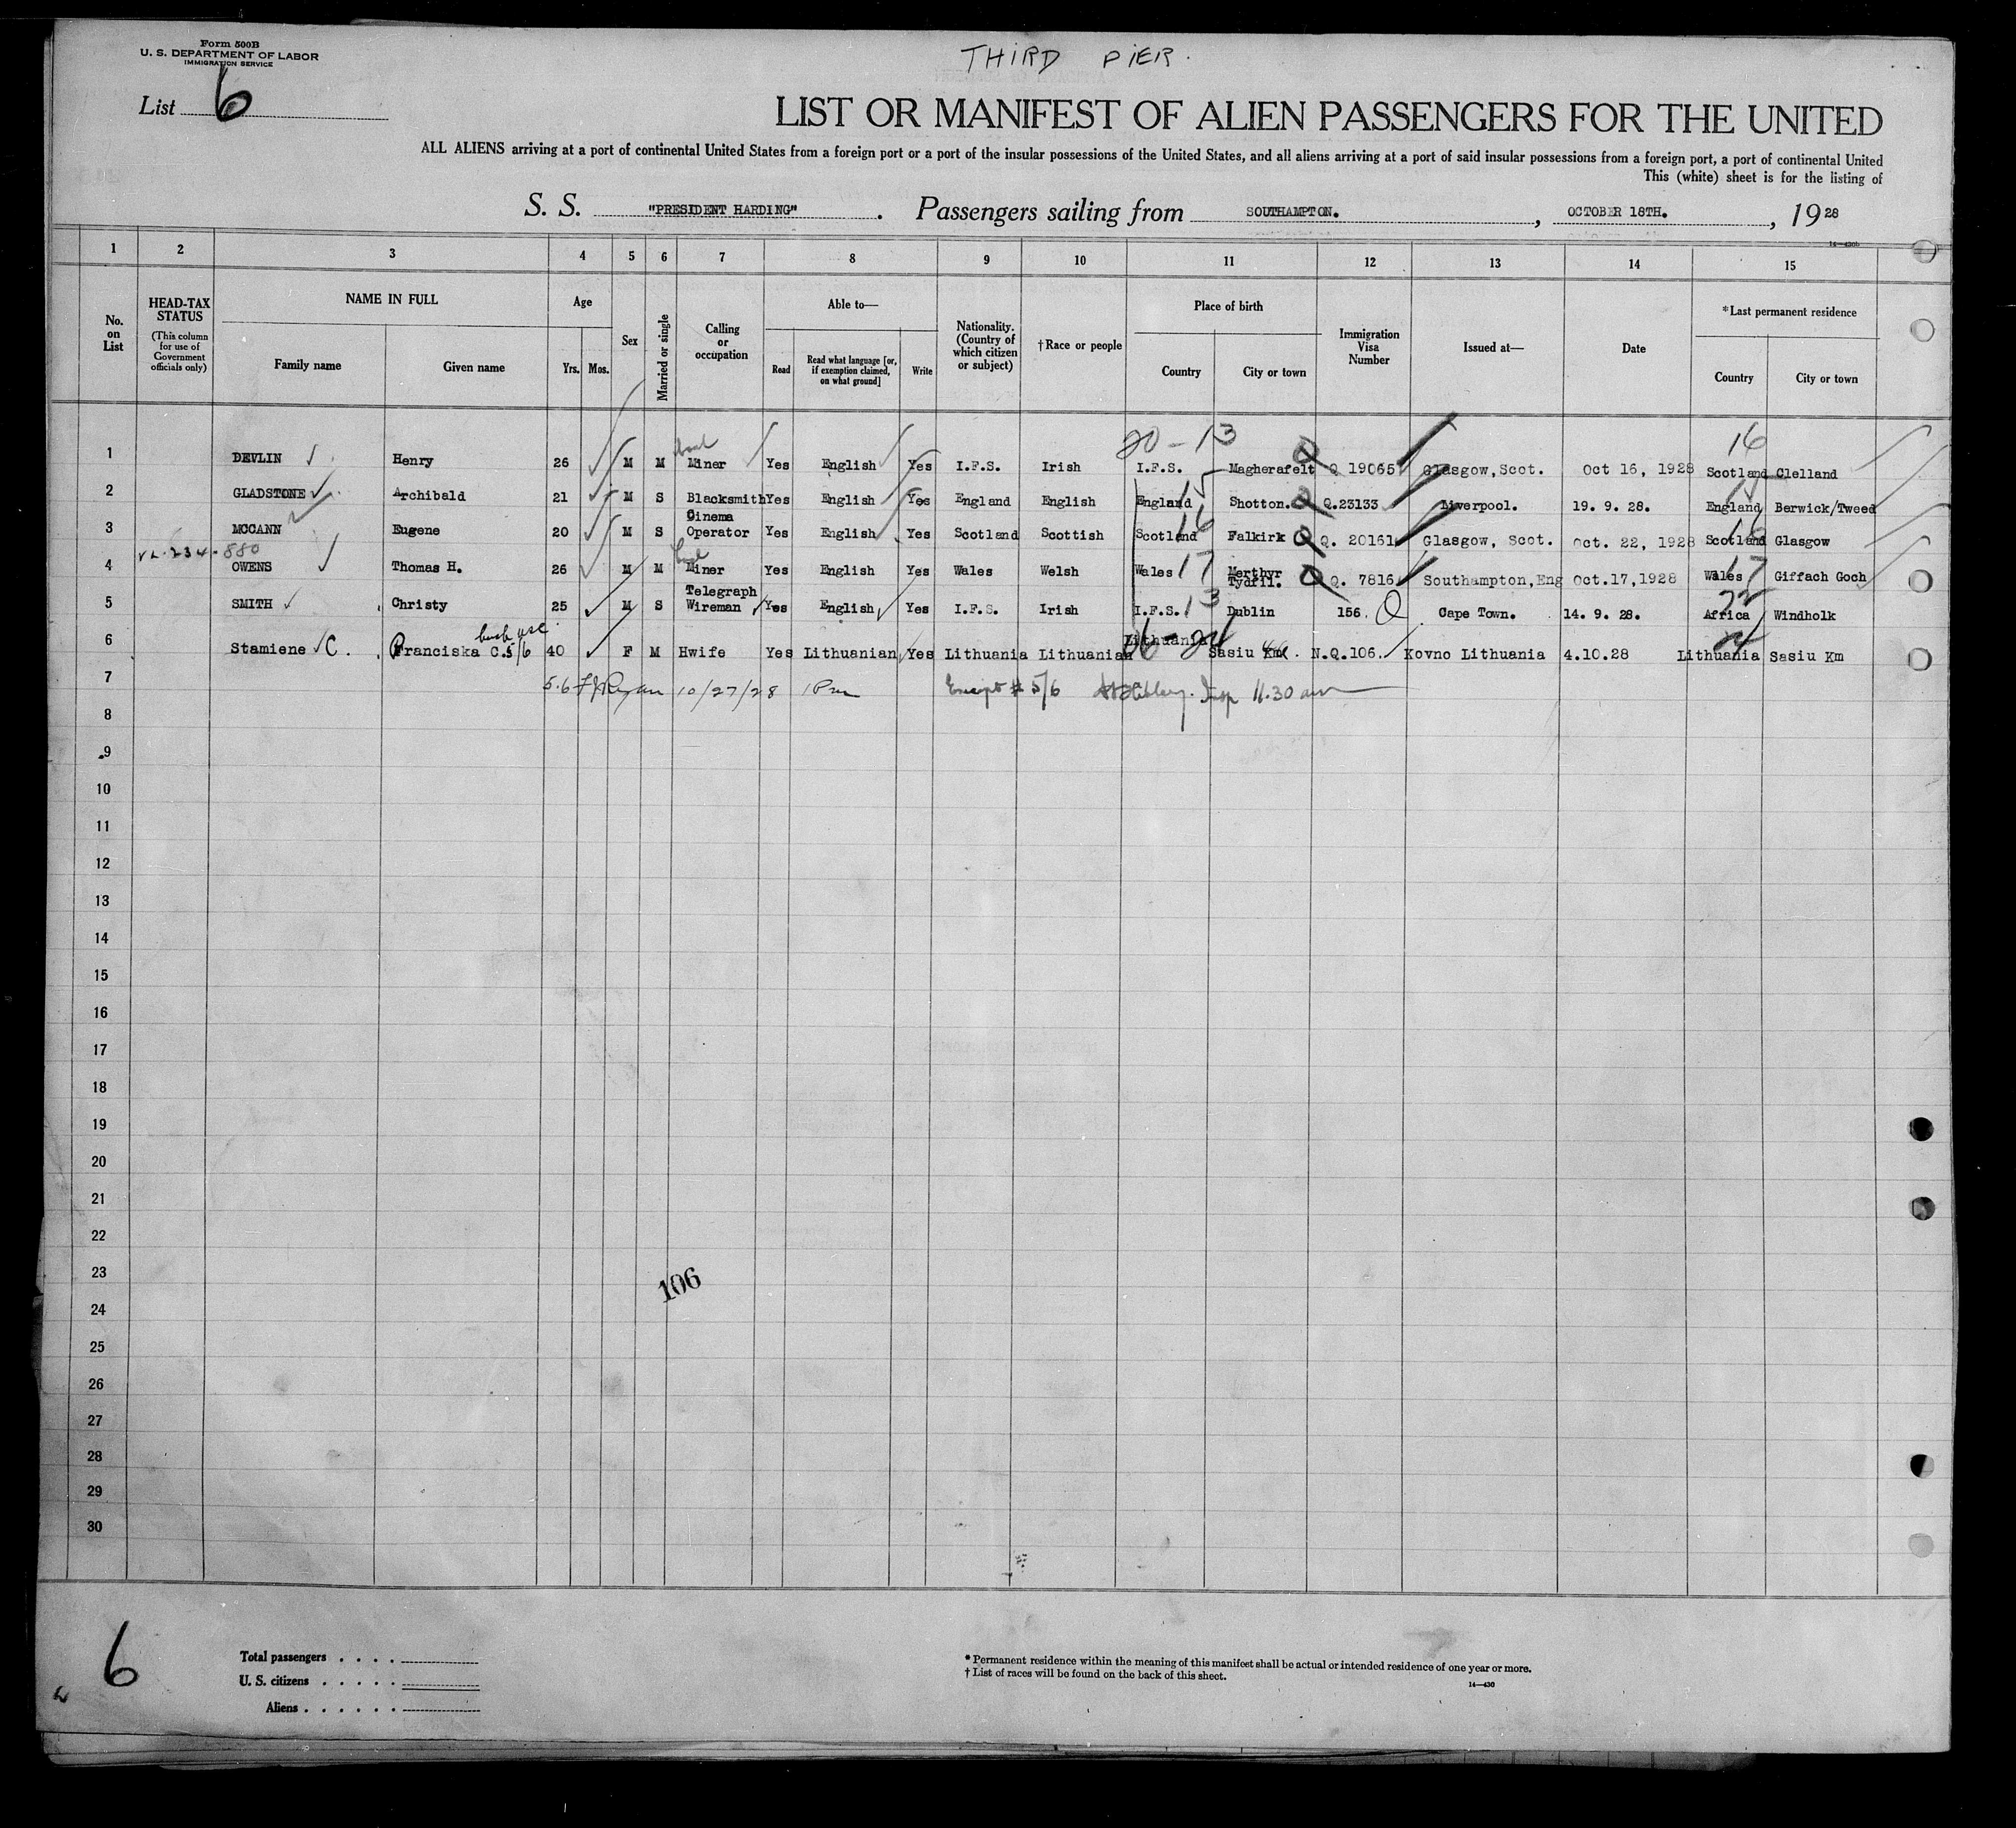 Form 500B
U. S. DEPARTMENT OF LABOR
IMMIGRATION SERVICE
THIRD PIER.
List 6
LIST OR MANIFEST OF ALIEN PASSENGERS FOR THE UNITED
ALL ALIENS arriving at a port of continental United States from a foreign port or a port of the insular possessions of the United States, and all aliens arriving at a port of said insular possessions from a foreign port, a port of continental United
This (white) sheet is for the listing of
S. S. "PRESIDENT HARDING". Passengers sailing from SOUTHAMPTON., OCTOBER 18TH., 1928
14—430b
1 2 3 4 5 6 7 8 9 10 11 12 13 14 15
No. on List
HEAD-TAX STATUS
(This column for use of Government officials only)
NAME IN FULL
Family name Given name
Age
Yrs. Mos.
Sex
Married or single
Calling or occupation
Able to—
Read
Read what language [or, if exemption claimed, on what ground]
Write
Nationality. (Country of which citizen or subject)
†Race or people
Place of birth
Country City or town
Immigration Visa Number
Issued at—
Date
*Last permanent residence
Country City or town
20-13 16
1 DEVLIN Henry 26 M M Miner Yes English Yes I.F.S. Irish I.F.S. Magherafelt Q 19065 Glasgow, Scot. Oct 16, 1928 Scotland Clelland
2 GLADSTONE Archibald 21 M S Blacksmith Yes English Yes England English England 15 Shotton. Q.23133 Liverpool. 19. 9. 28. England 15 Berwick/Tweed
3 MCCANN Eugene 20 M S Cinema Operator Yes English Yes Scotland Scottish Scotland 16 Falkirk Q. 20161 Glasgow, Scot. Oct. 22, 1928 Scotland 16 Glasgow
4 OWENS Thomas H. 26 M M Miner Yes English Yes Wales Welsh Wales 17 Merthyr Tydfil. Q. 7816 Southampton, Eng Oct.17,1928 Wales 17 Giffach Goch
5 SMITH Christy 25 M S Telegraph Wireman Yes English Yes I.F.S. Irish I.F.S. 13 Dublin 156. Q Cape Town. 14. 9. 28. Africa Windholk
6 Stamiene C. Franciska C.5/6 40 F M Hwife Yes Lithuanian Yes Lithuania Lithuanian Lithuania Sasiu Km. N.Q.106. Kovno Lithuania 4.10.28 Lithuania Sasiu Km
7 5.6 Ryan 10/27/28 1 Pm Except # 5/6 Insp 11.30 am
8
9
10
11
12
13
14
15
16
17
18
19
20
21
22
23
106
24
25
26
27
28
29
30
6
Total passengers . . . .
U. S. citizens . . . . .
Aliens . . . . . .
* Permanent residence within the meaning of this manifest shall be actual or intended residence of one year or more.
† List of races will be found on the back of this sheet.
14—430